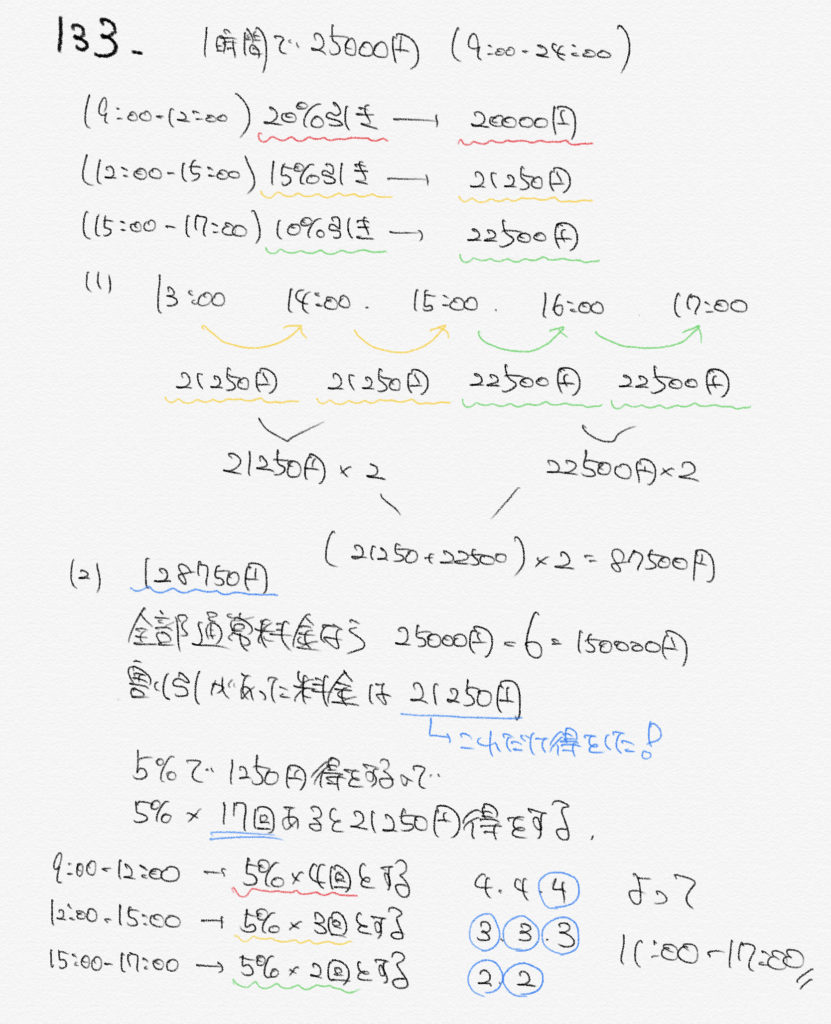 133.
1時間で 25000円 (9:00-24:00)
(9:00-12:00) 20%引き → 20000円
(12:00-15:00) 15%引き → 21250円
(15:00-17:00) 10%引き → 22500円
(1)
13:00 14:00. 15:00. 16:00 17:00
21250円 21250円 22500円 22500円
21250円×2 22500円×2
(21250+22500)×2=87500円
(2) 128750円
全部通常料金なら 25000円-6=150000円
割り引があった料金は 21250円
これだけ得をした!
5%で 1250円得をするので
5%×17回あると21250円得をする.
9:00-12:00 → 5%×4回とする 4.4.4 よって
12:00-15:00 → 5%×3回とする 3.3.3
11:00-17:00
15:00-17:00 → 5%×2回とする 2.2